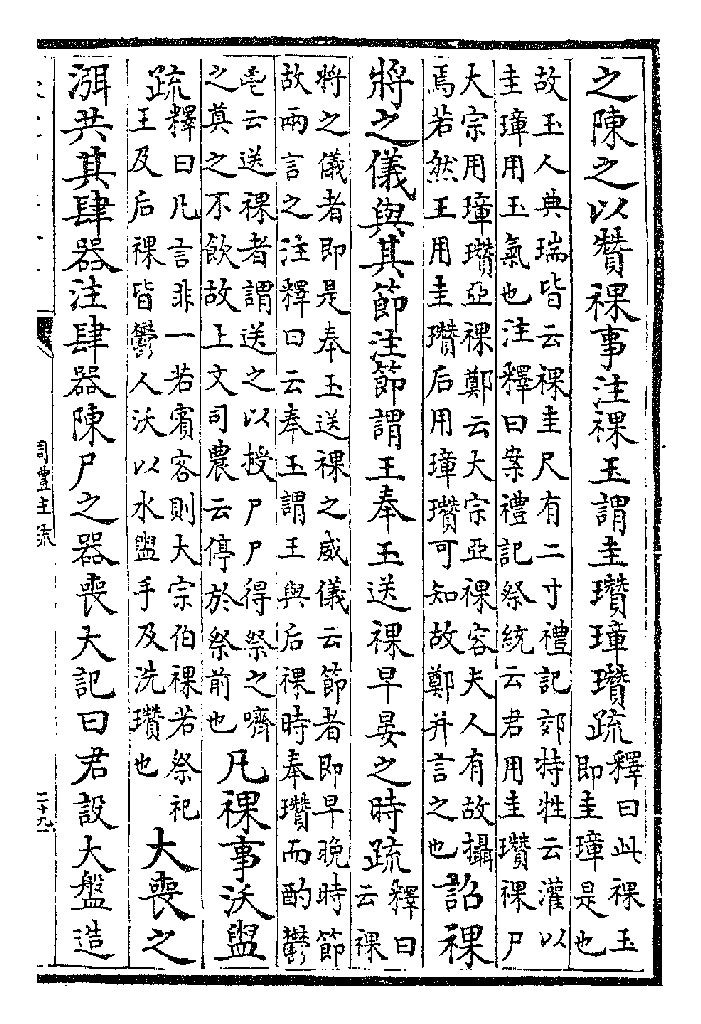 之陳之以贊祼事注祼玉謂圭瓚璋瓚疏
釋曰此祼玉
即圭璋是也
故玉人典瑞皆云祼圭尺有二寸禮記郊特牲云灌以
圭璋用玉氣也注釋曰案禮記祭統云君用圭瓚祼尸
大宗用璋瓚亞祼鄭云大宗亞祼容夫人有故攝
焉若然王用圭瓚后用璋瓚可知故鄭并言之也
詔祼
將之儀與其節注節謂王奉玉送祼早晏之時疏
釋曰
云祼
將之儀者即是奉玉送祼之威儀云節者即早晚時節
故兩言之注釋曰云奉玉謂王與后祼時奉瓚而酌鬱
鬯云送祼者謂送之以授尸尸得祭之嚌
之奠之不飲故上文司農云停於祭前也
凡祼事沃盥
疏
釋曰凡言非一若賓客則大宗伯祼若祭祀
王及后祼皆鬱人沃以水盥手及洗瓚也
大喪之
渳共其肆器注肆器陳尸之器喪大記曰君設大盤造
周禮注疏